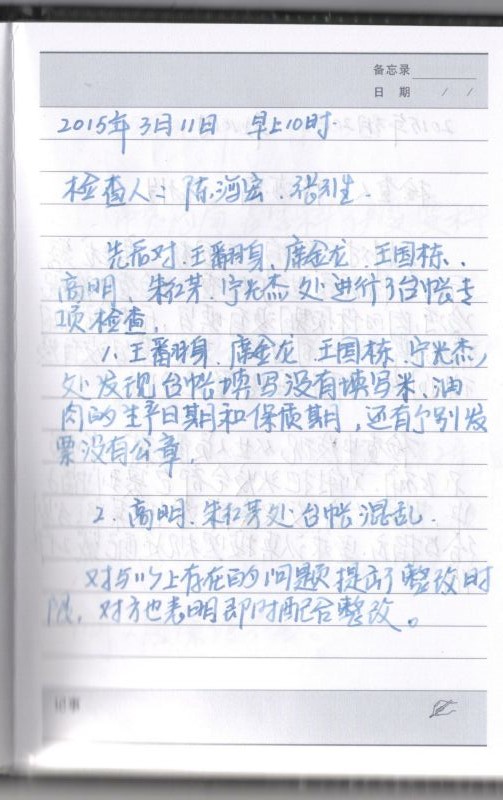 备忘录
日 期 / /
2015年3月11日 早上10时.
检查人: 陈海宏.张引生.
先后对.王翻身、席金龙、王国栋、
高明、朱红芽、宁光杰处进行了台帐专
项检查。
1. 王翻身、席金龙、王国栋.宁光杰,
处发现台帐填写没有填写米、油
肉的生产日期和保质期,还有个别发
票没有公章。
2. 高明.朱红芽处台帐混乱.
对与以上存在的问题提出了整改时
限,对方也表明即时配合整改。
记事